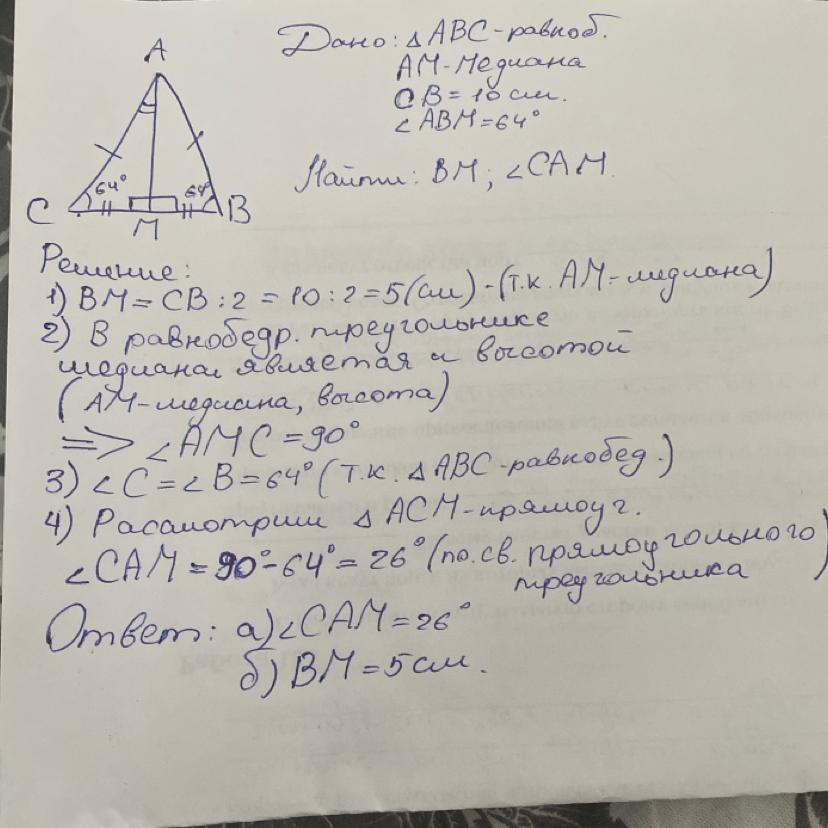 A
64°
64°
C
M
B
Дано: △ABC-равноб.
AM-медиана
CB = 10 см.
∠ABM = 64°
Найти: BM; ∠CAM.
Решение:
1) BM = CB : 2 = 10 : 2 = 5 (см) - (т.к. AM-медиана)
2) В равнобедр. треугольнике
медиана является и высотой
(AM-медиана, высота)
=> ∠AMC = 90°
3) ∠C = ∠B = 64° (т.к. △ABC-равнобед.)
4) Рассмотрим △ACM-прямоуг.
∠CAM = 90° - 64° = 26° (по св. прямоугольного
треугольника)
Ответ: а) ∠CAM = 26°
б) BM = 5 см.